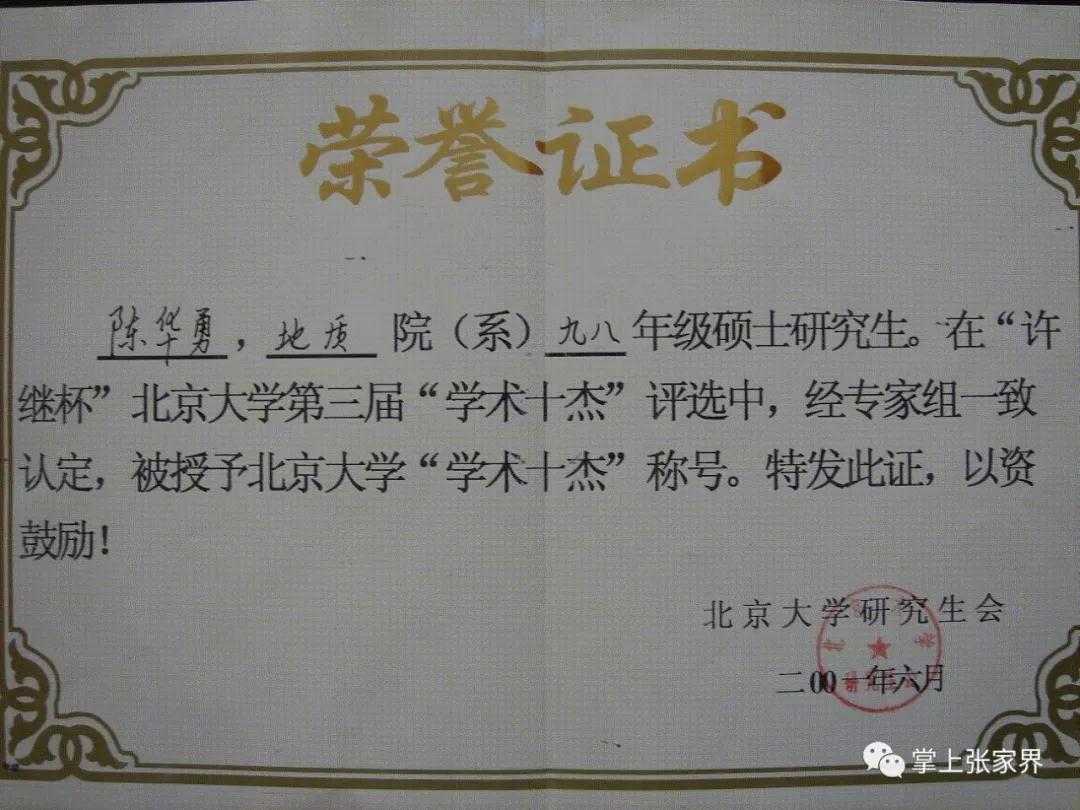 荣誉证书
陈华勇，地质 院（系）九八年级硕士研究生。在“许
继杯”北京大学第三届“学术十杰”评选中，经专家组一致
认定，被授予北京大学“学术十杰”称号。特发此证，以资
鼓励！
北京大学研究生会
二00一年六月
掌上张家界